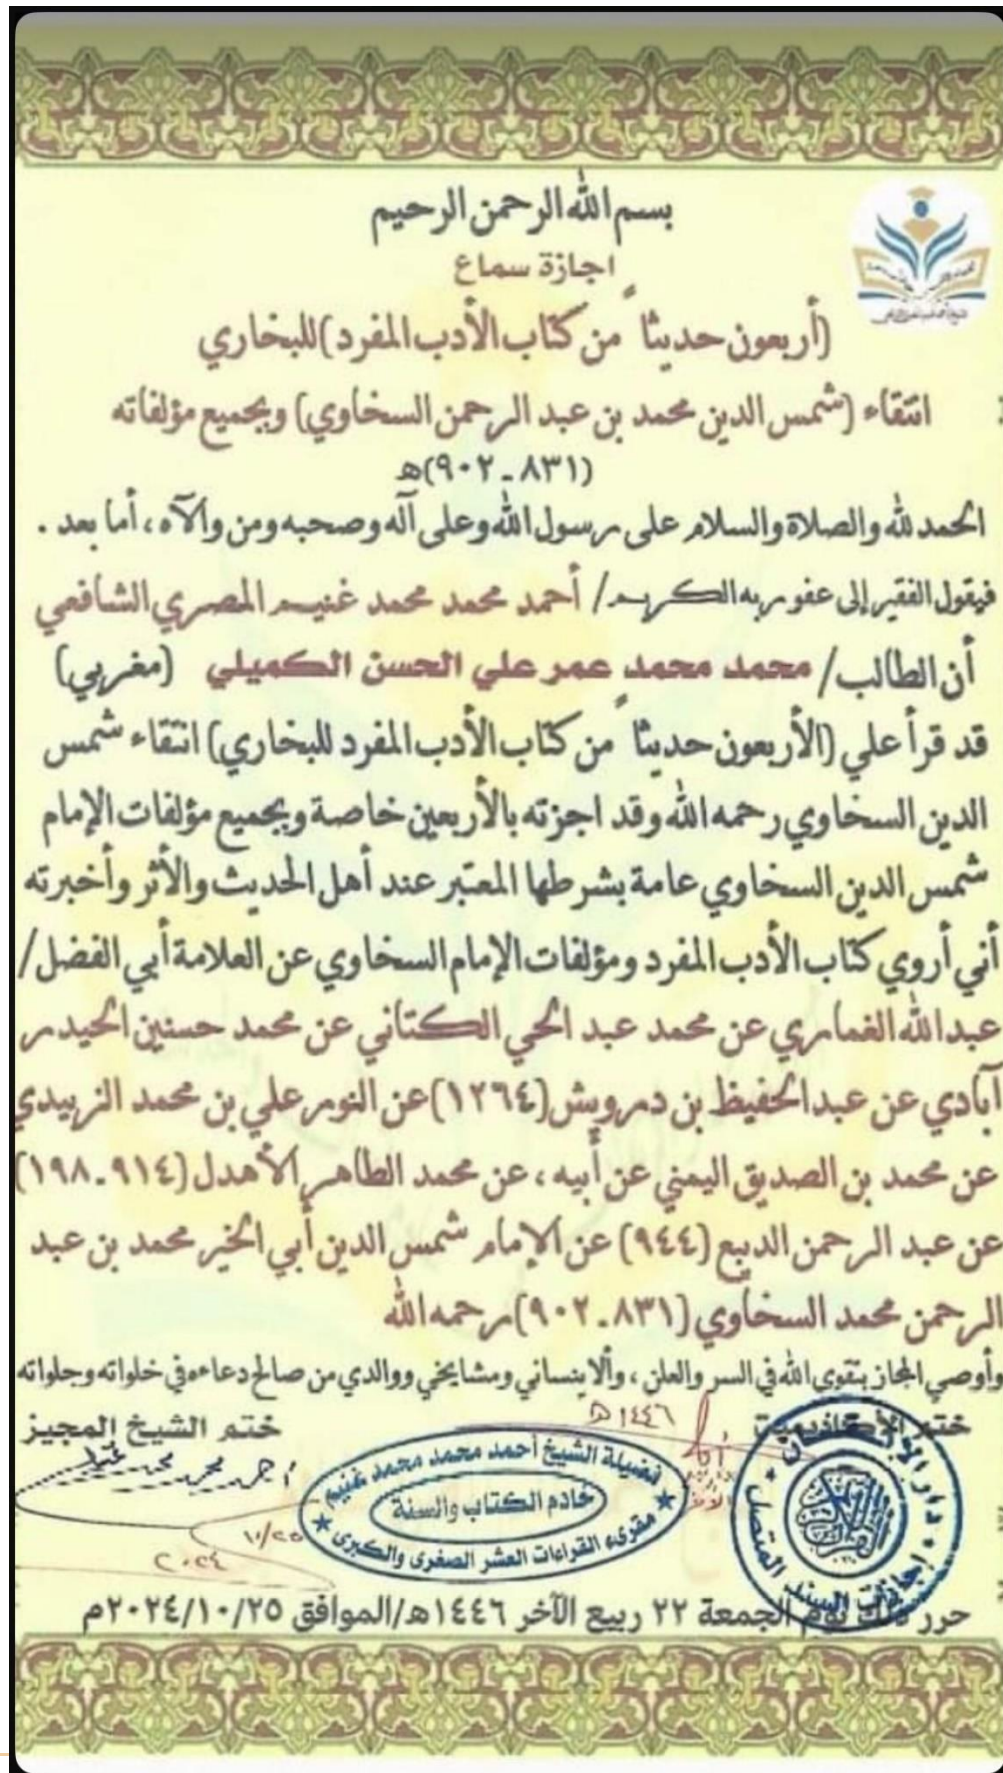 بسم الله الرحمن الرحيم
اجازة سماع
(أربعون حديثاً من كتاب الأدب المفرد) للبخاري
انتقاء (شمس الدين محمد بن عبد الرحمن السخاوي) وبجميع مؤلفاته
(٨٣١ - ٩٠٢)هـ
الحمد لله والصلاة والسلام على رسول الله وعلى آله وصحبه ومن والآه ، أما بعد .
فيقول الفقير إلى عفو ربه الكريم / أحمد محمد محمد غنيم المصري الشافعي
أن الطالب / محمد محمد عمر علي الحسن الكميلي (مغربي)
قد قرأ علي (الأربعون حديثاً من كتاب الأدب المفرد للبخاري) انتقاء شمس
الدين السخاوي رحمه الله وقد اجزته بالأربعين خاصة وبجميع مؤلفات الإمام
شمس الدين السخاوي عامة بشرطها المعتبر عند أهل الحديث والأثر وأخبرته
أني أروي كتاب الأدب المفرد ومؤلفات الإمام السخاوي عن العلامة أبي الفضل /
عبد الله الغماري عن محمد عبد الحي الكتاني عن محمد حسنين الحيدر
آبادي عن عبد الحفيظ بن درويش (١٢٦٤) عن النور علي بن محمد الزبيدي
عن محمد بن الصديق اليمني عن أبيه ، عن محمد الطاهر الأهدل (٩١٤ - ١٩٨)
عن عبد الرحمن الديبع (٩٤٤) عن الإمام شمس الدين أبي الخير محمد بن عبد
الرحمن محمد السخاوي (٨٣١ - ٩٠٢) رحمه الله
وأوصي المجاز بتقوى الله في السر والعلن ، وألا ينساني ومشايخي ووالدي من صالح دعاءه في خلواته وجلواته
ختم الأكاديمية
ختم الشيخ المجيز
١٤٤٦ هـ
أحمد محمد محمد غنيم
فضيلة الشيخ أحمد محمد محمد غنيم
خادم الكتاب والسنة
مقرىء القراءات العشر الصغرى والكبرى
١٠/٢٥
٢٠٢٤
القرآن الكريم
إجازات السند المتصل
حرر ذلك يوم الجمعة ٢٢ ربيع الآخر ١٤٤٦هـ/الموافق ٢٠٢٤/١٠/٢٥م